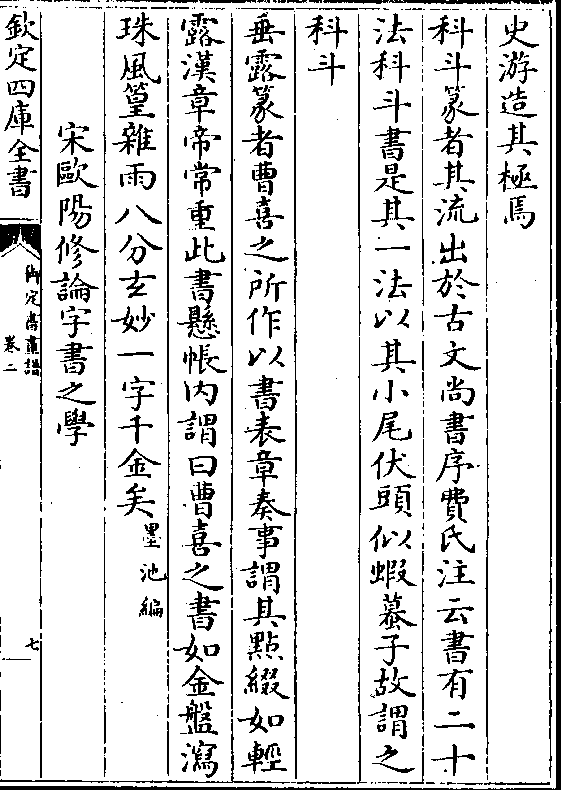 史游造其極焉
科斗篆者其流出於古文尚書序費氏注云書有二十
法科斗書是其一法以其小尾伏頭似蝦蟇子故謂之
科斗
垂露篆者曹喜之所作以書表章奏事謂其點綴如輕
露漢章帝常重此書懸帳内謂曰曹喜之書如金盤瀉
珠風篁雜雨八分玄妙一字千金矣墨池編
宋歐陽修論字書之學
欽定四庫全書
御定書畫譜
卷二
七